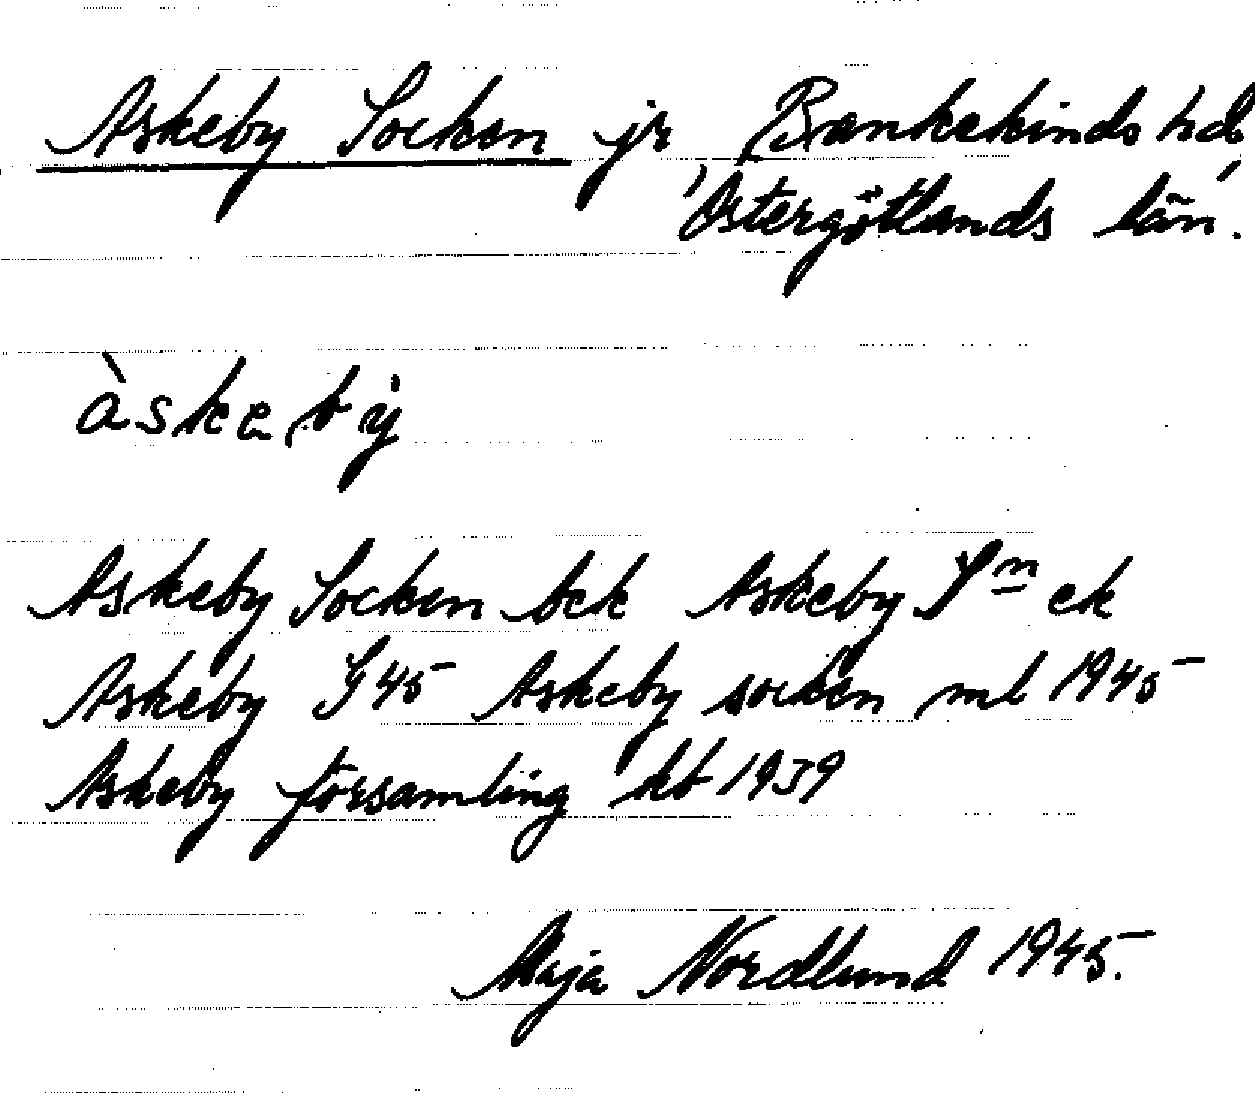 Askeby Socken jr Bankekinds hd
Östergötlands län.
àskeby
Askeby Socken bek Askeby Sn ek
Askeby G 45 Askeby socken ml 1945
Askeby församling kb 1939
Maja Nordlund 1945.